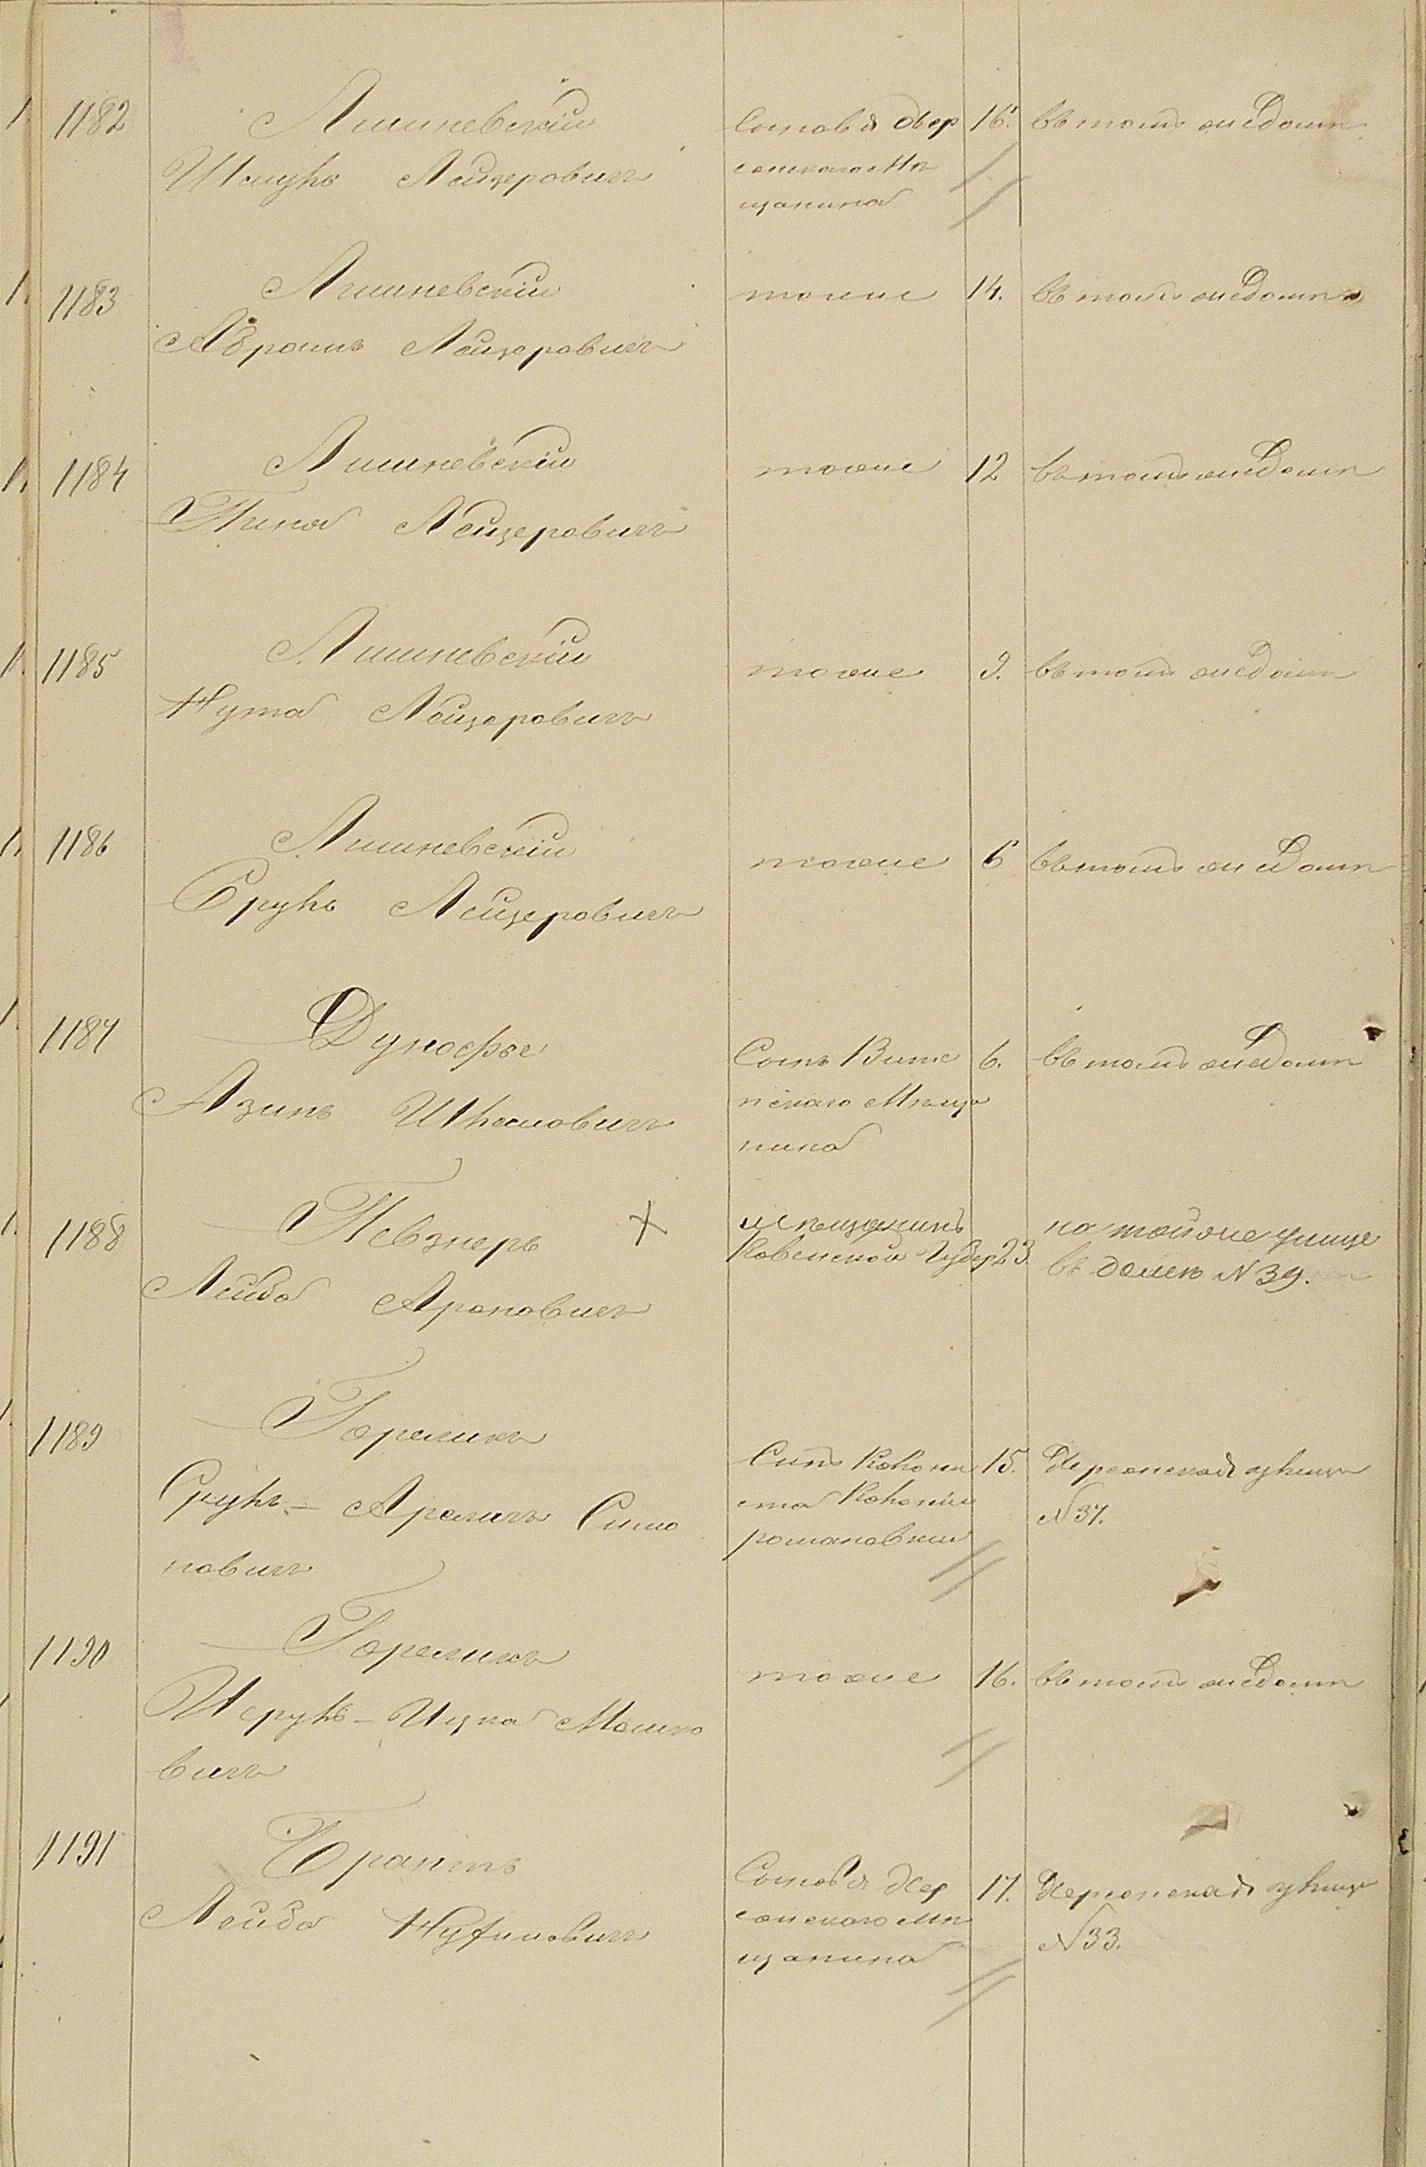 1182 Лишневскій
Шмуль Лейзеровичъ
Сыновья Хер
сонскаго Мѣ
щанина
16. въ томъ же домѣ
1183 Лишневскій
Абрамъ Лейзеровичъ
тоже 14. въ томъ же домѣ
1184 Лишневскій
Лейзеровичъ
тоже 12 въ томъ же домѣ
1185 Лишневскій
Нута Лейзеровичъ
тоже 9. въ томъ же домѣ
1186 Лишневскій
Сруль Лейзеровичъ
тоже 6 въ томъ же домѣ
1187
Сынъ Витеб
скаго Мѣща
нина
6. въ томъ же домѣ
1188 Певзнеръ
Лейба Ароновичъ
мѣщанинъ
Ковенской Губер 23
на той же улице
въ доме N 39.
1189 Гореликъ
Сруль - Симо
новичъ
Сынъ Колони
ста Колоніи
Романовки
15. Херсонская улица
N 37.
1190 Гореликъ
Исруль - Ицка Мошко
вичъ
тоже 16. въ томъ же домѣ
1191 Брантъ
Лейба
Сыновья Хер
сонскаго Мѣ
щанина
17. Херсонская улица
N 33.